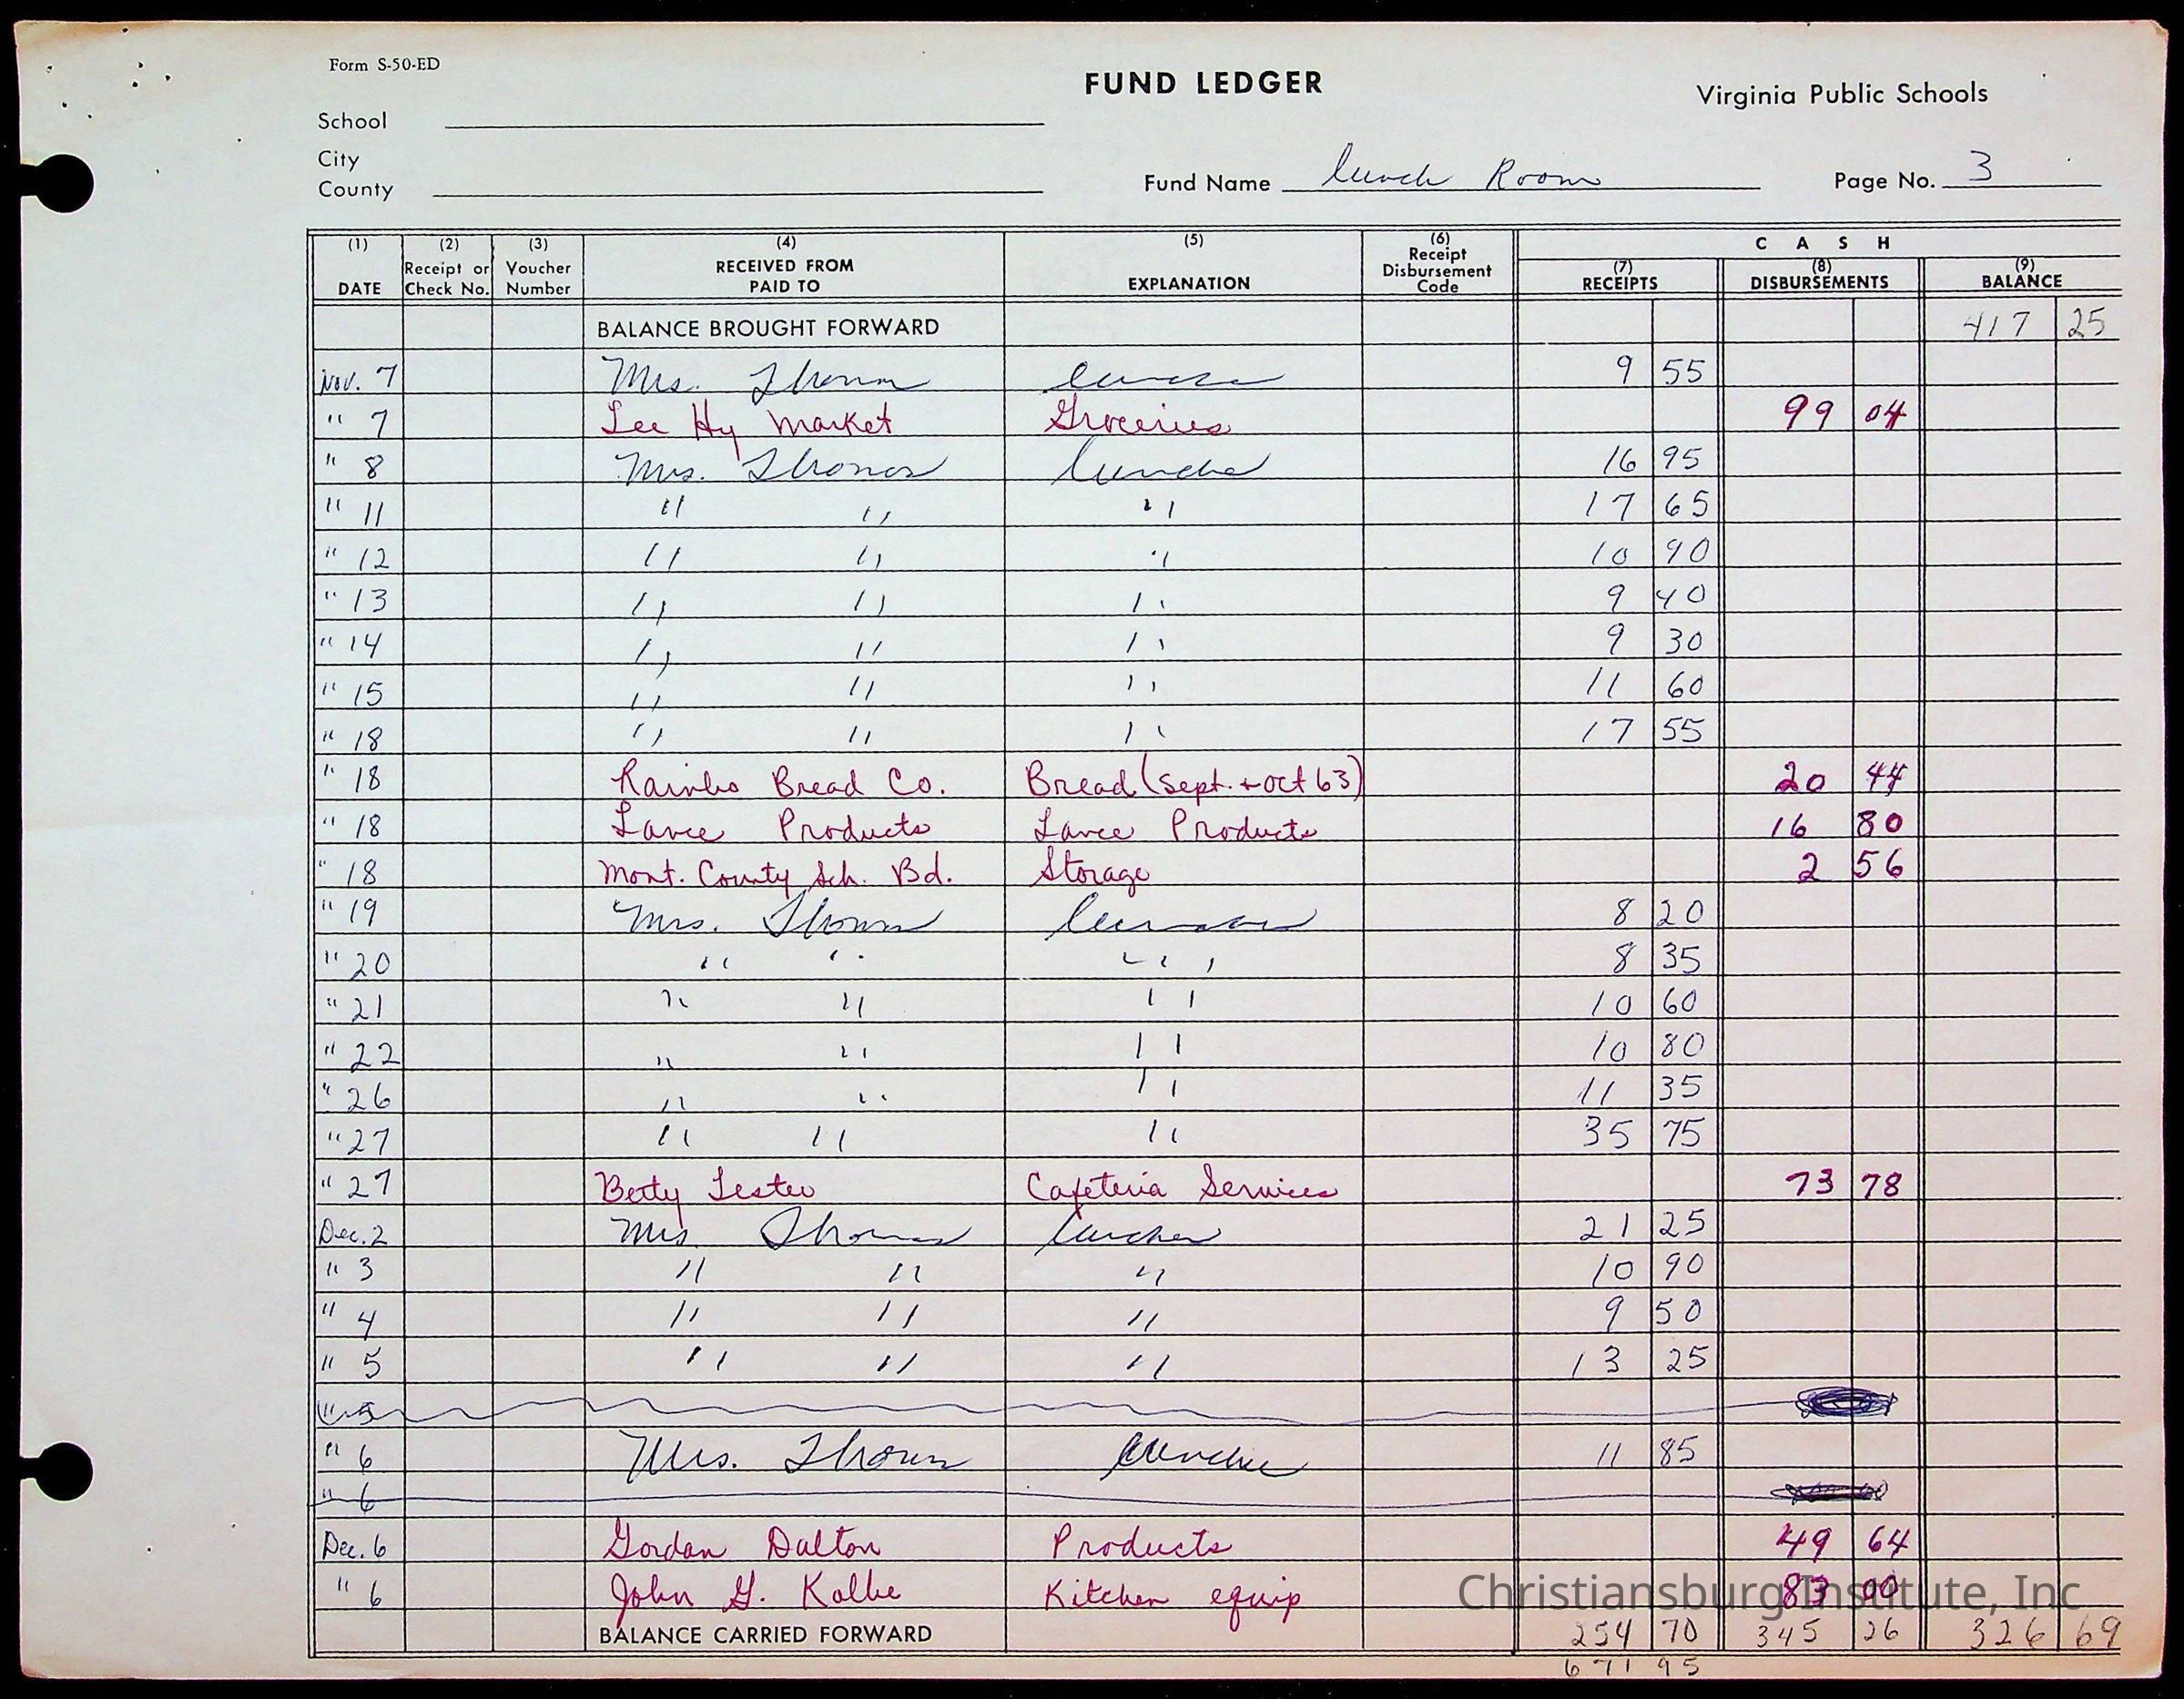 Form S-50-ED
FUND LEDGER
Virginia Public Schools
School
City
County
Fund Name Lunch Room
Page No. 3
(1) (2) (3) (4) (5) (6) C A S H
DATE Receipt or Check No. Voucher Number RECEIVED FROM PAID TO EXPLANATION Receipt Disbursement Code (7) RECEIPTS (8) DISBURSEMENTS (9) BALANCE
BALANCE BROUGHT FORWARD 417 25
Nov. 7 Mrs. Thomas lunches 9 55
" 7 Lee Hy Market Groceries 99 04
" 8 Mrs. Thomas lunches 16 95
" 11 " " " 17 65
" 12 " " " 10 90
" 13 " " " 9 40
" 14 " " " 9 30
" 15 " " " 11 60
" 18 " " " 17 55
" 18 Rainbo Bread Co. Bread (Sept. + Oct 63) 20 44
" 18 Lance Products Lance Products 16 80
" 18 Mont. County Sch. Bd. Storage 2 56
" 19 Mrs. Thomas lunches 8 20
" 20 " " " 8 35
" 21 " " " 10 60
" 22 " " " 10 80
" 26 " " " 11 35
" 27 " " " 35 75
" 27 Betty Lester Cafeteria Services 73 78
Dec. 2 Mrs Thomas lunches 21 25
" 3 " " " 10 90
" 4 " " " 9 50
" 5 " " " 13 25
" 5
" 6 Mrs. Thomas lunches 11 85
" 6
Dec. 6 Gordan Dalton Products 49 64
" 6 John G. Kolbe Kitchen equip 83 00
Christiansburg Institute, Inc
BALANCE CARRIED FORWARD 254 70 345 26 326 69
671 95